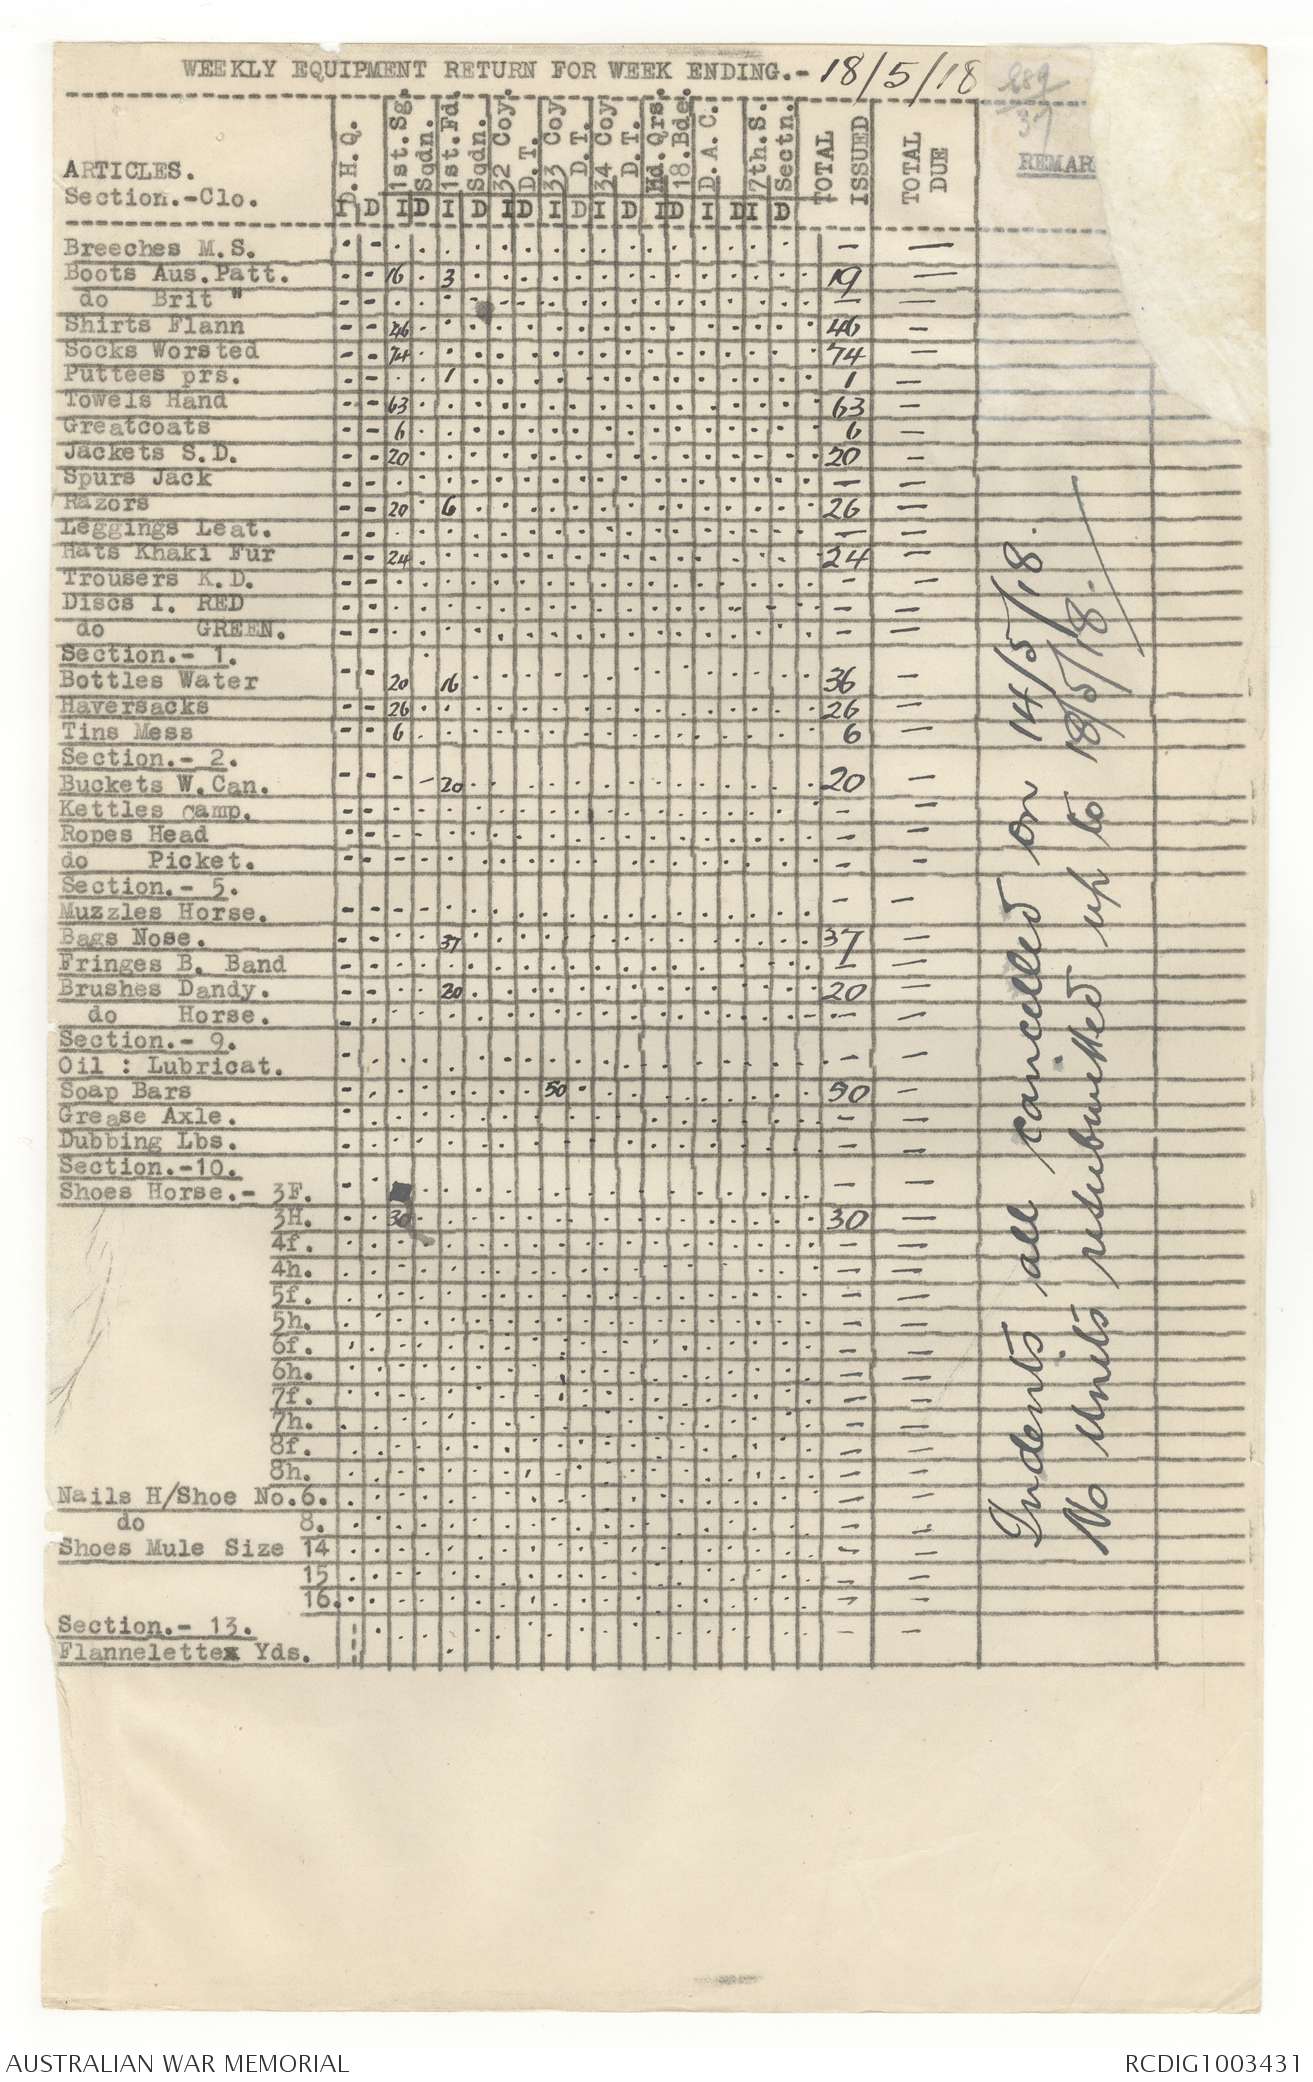 WEEKLY EQUIPMENT RETURN FOR WEEK ENDING.- 18/5/18
37
ARTICLES.
Section.-Clo.
D.H.Q. I D
1st.Sg. Sqdn. I D
1st.Fd. Sqdn. I D
32 Coy. D.T. I D
33 Coy D.T. I D
34 Coy D.T. I D
Hd.Qrs. 18.Bde. I D
D.A.C. I D
7th.S. Sectn. I D
TOTAL ISSUED
TOTAL DUE
REMAR
Breeches M.S. - -
Boots Aus.Patt. 16 3 19 -
do Brit " - -
Shirts Flann 46 46 -
Socks Worsted 74 74 -
Puttees prs. 1 1 -
Towels Hand 63 63 -
Greatcoats 6 6 -
Jackets S.D. 20 20 -
Spurs Jack - -
Razors 20 6 26 -
Leggings Leat. - -
Hats Khaki Fur 24 24 -
Trousers K.D. - -
Discs I. RED - -
do GREEN. - -
Section.- 1.
Bottles Water 20 16 36 -
Haversacks 26 26 -
Tins Mess 6 6 -
Section.- 2.
Buckets W.Can. 20 20 -
Kettles camp. - -
Ropes Head - -
do Picket. - -
Section.- 5.
Muzzles Horse. - -
Bags Nose. 37 37 -
Fringes B. Band - -
Brushes Dandy. 20 20 -
do Horse. - -
Section.- 9.
Oil : Lubricat. - -
Soap Bars 50 50 -
Grease Axle. - -
Dubbing Lbs. - -
Section.-10.
Shoes Horse.- 3F. - -
3H. 30 30 -
4f. - -
4h. - -
5f. - -
5h. - -
6f. - -
6h. - -
7f. - -
7h. - -
8f. - -
8h. - -
Nails H/Shoe No.6. - -
do 8. - -
Shoes Mule Size 14 - -
15 - -
16. - -
Section.- 13.
Flannelettex Yds. - -
Indents all cancelled on 14/5/18.
No Units resubmitted up to 18/5/18.
AUSTRALIAN WAR MEMORIAL
RCDIG1003431